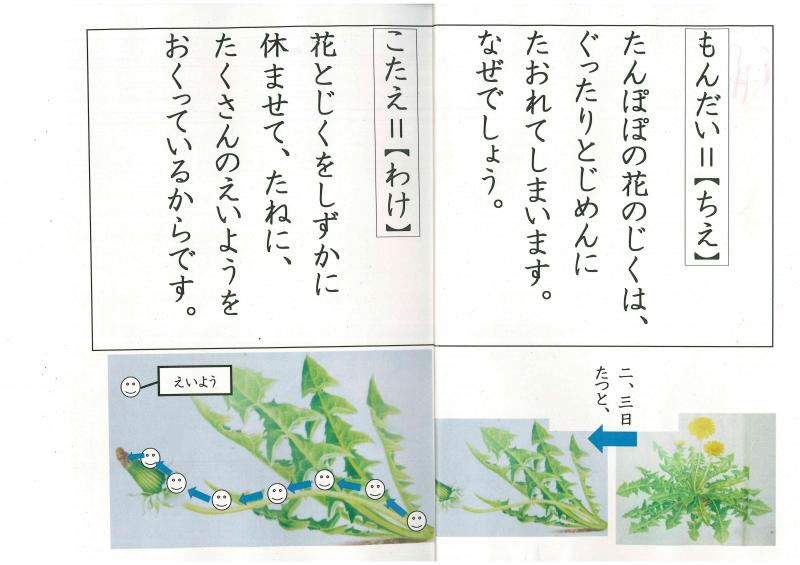 もんだい=【ちえ】
たんぽぽの花のじくは、
ぐったりとじめんに
たおれてしまいます。
なぜでしょう。
こたえ=【わけ】
花とじくをしずかに
休ませて、たねに、
たくさんのえいようを
おくっているからです。
二、三日
たつと、
えいよう